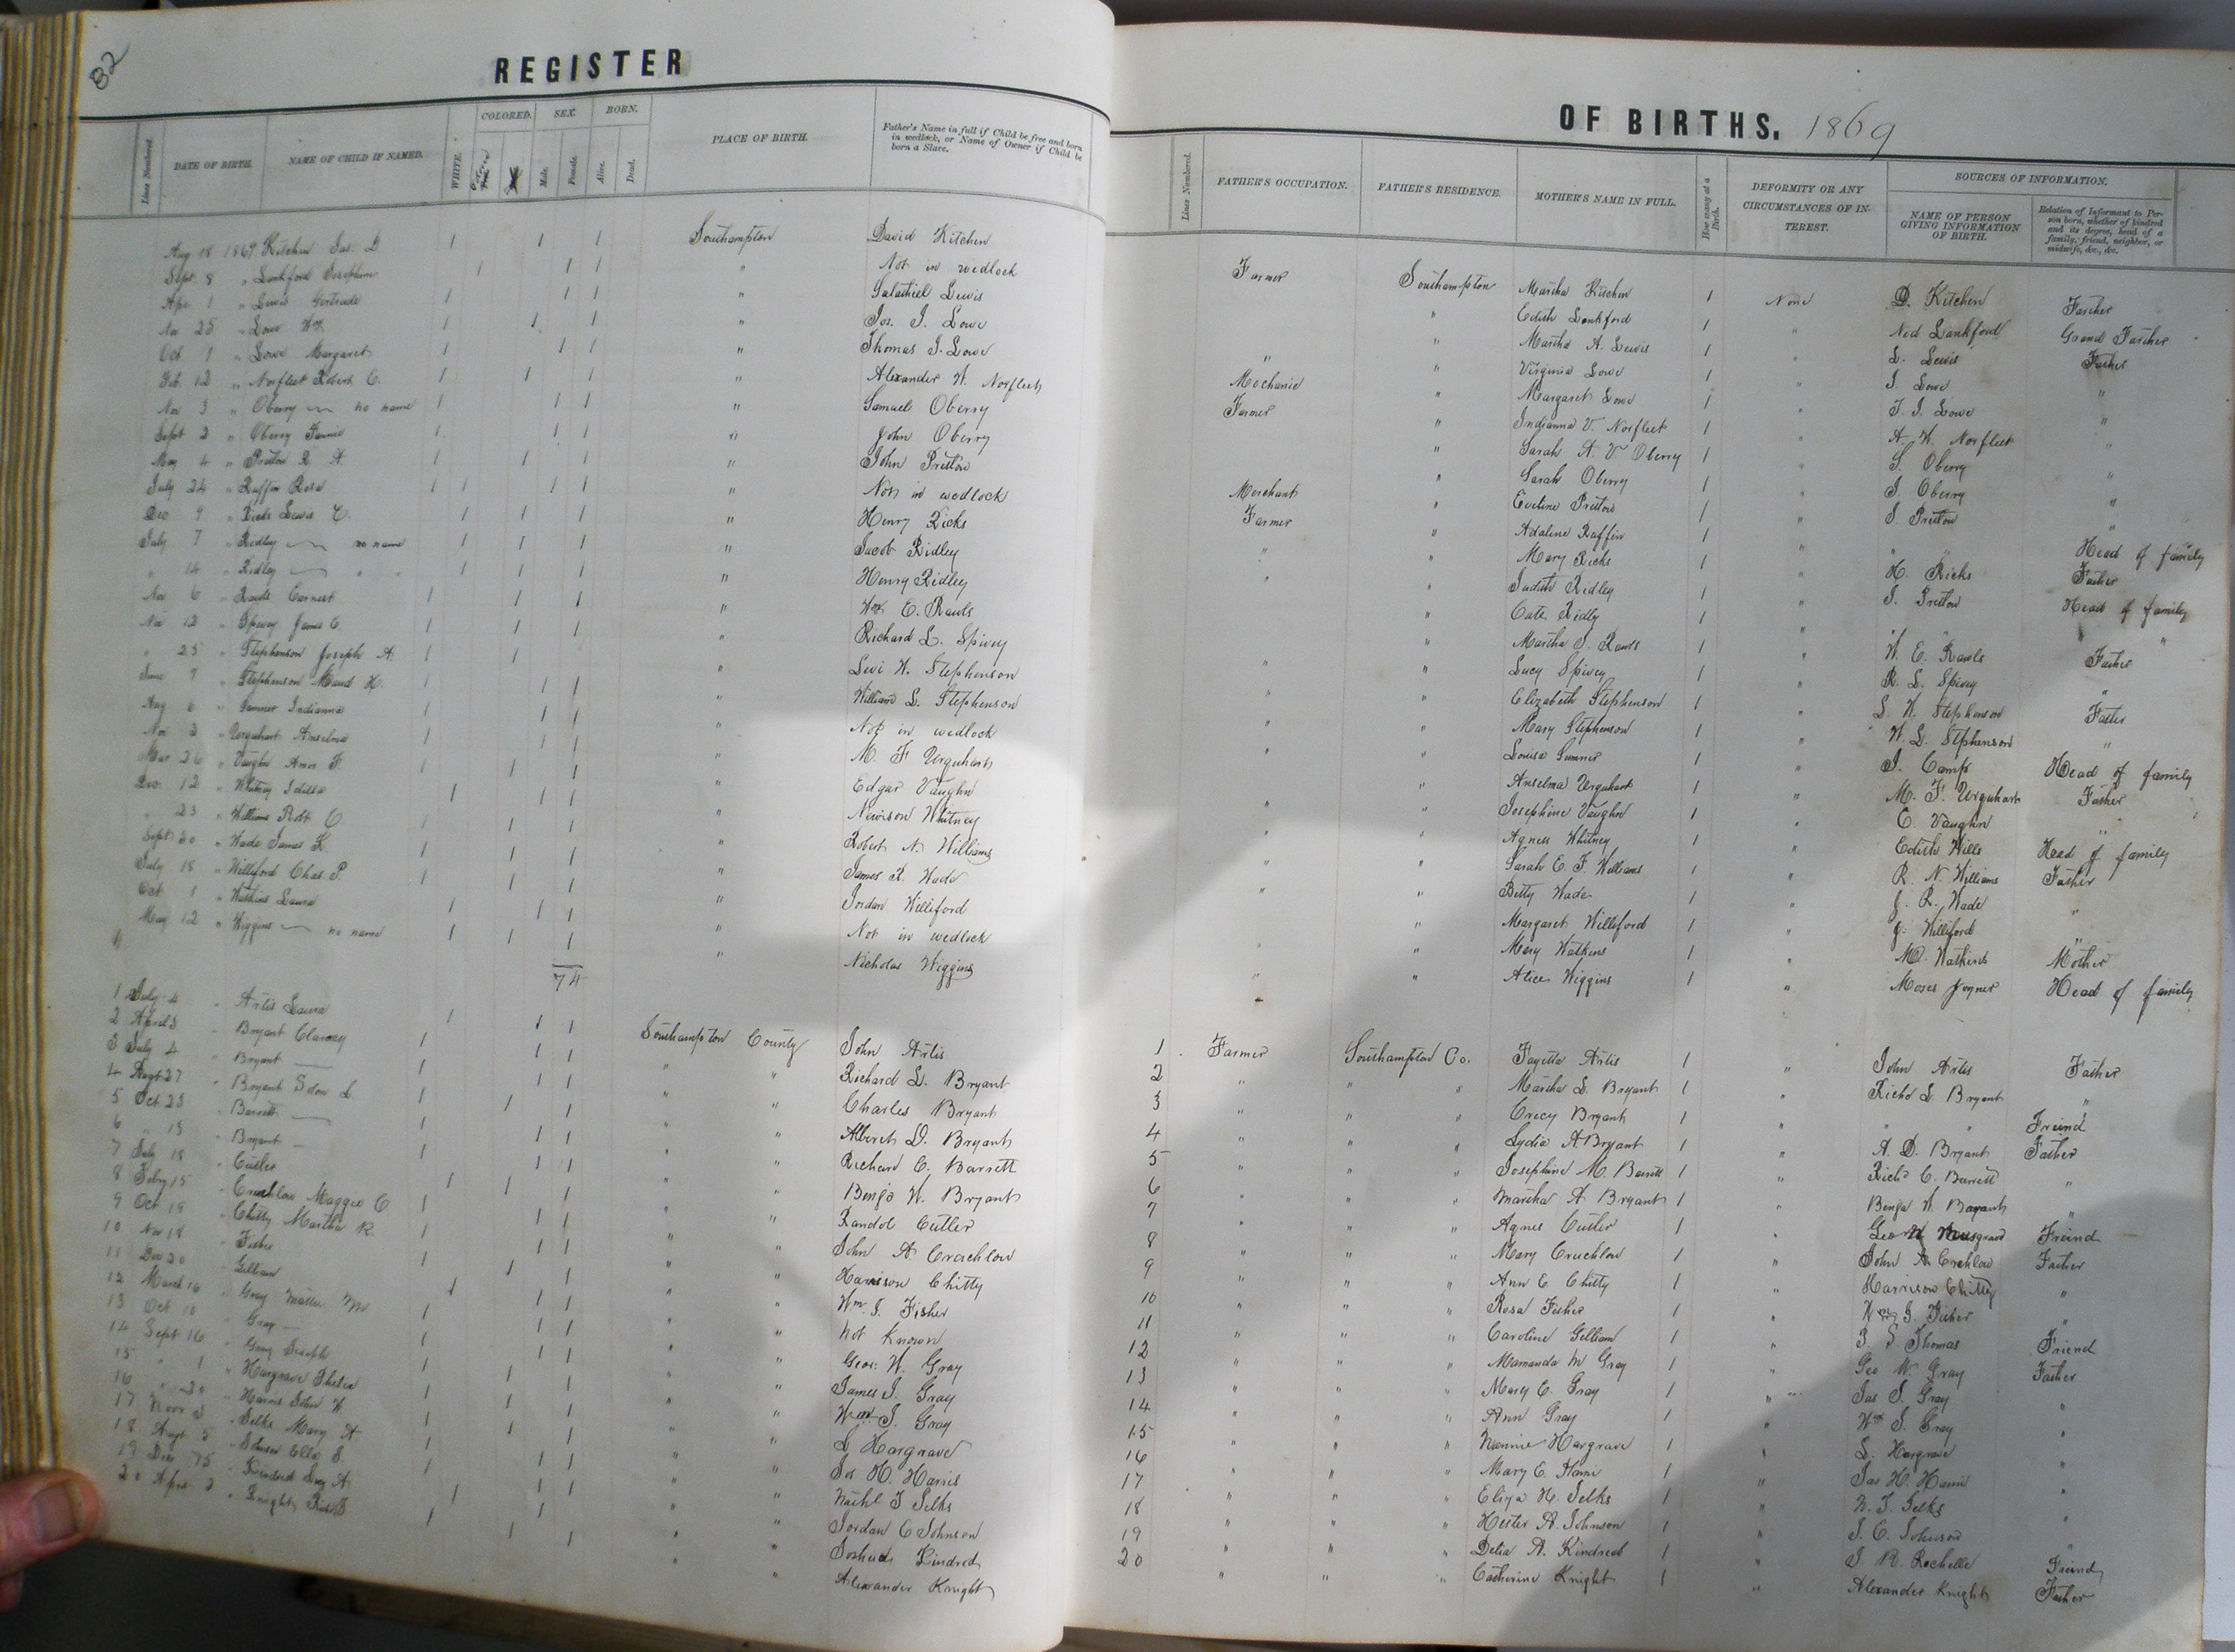 82
REGISTER
Lines Numbered.
DATE OF BIRTH.
NAME OF CHILD IF NAMED.
WHITE.
COLORED.
SEX.
Male.
Female.
BORN.
Alive.
Dead.
PLACE OF BIRTH.
Father's Name in full if Child be free and born
in wedlock, or Name of Owner if Child be
born a Slave.
Aug 18 1869 Kitchen Jas. D 1 1 1 Southampton David Kitchen
Sept 8 " Lankford Josephine 1 1 1 " Not in wedlock
Apr 1 " Lewis Gertrude 1 1 1 " Salathiel Lewis
Nov 25 " Lowe Wm 1 1 1 " Jos. J. Lowe
Oct 1 " Lowe Margaret 1 1 1 " Thomas J. Lowe
Feb 12 " Norfleet Robert C. 1 1 1 " Alexander W. Norfleet
Nov 3 " Oberry — no name 1 1 1 " Samuel Oberry
Sept 2 " Oberry Fannie 1 1 1 " John Oberry
May 4 " Pretlow R. A. 1 1 1 " John Pretlow
July 24 " Ruffin Rosa 1 1 1 1 " Not in wedlock
Dec 9 " Ricks Lewis C. 1 1 1 " Henry Ricks
July 7 " Ridley — no name 1 1 1 " Jacob Ridley
" 14 " Ridley — " " 1 1 1 " Henry Ridley
Nov 6 " Rawls Earnest 1 1 1 " Wm E. Rawls
Nov 12 " Spivey James C 1 1 1 " Richard L. Spivey
" 25 " Stephenson Joseph A. 1 1 " Levi W. Stephenson
June 7 " Stephenson Maud H. 1 1 1 " William L. Stephenson
Aug 6 " Sumner Indianna 1 1 " Not in wedlock
Nov 3 " Urquhart Anselma 1 1 " M. F Urquhart
Mar 26 " Vaughn Amos F. 1 1 1 " Edgar Vaughn
Dec 12 " Whitney Idilla 1 1 1 " Newison Whitney
" 23 " Williams Robt C. 1 1 " Robert N. Williams
Sept 20 " Wade James K. 1 1 1 " James R. Wade
July 18 " Williford Chas. P. 1 1 1 " Jordan Williford
Oct 1 " Watkins Laura 1 1 1 " Not in wedlock
May 12 " Wiggins — no name 1 1 1 " Nicholas Wiggins
74
1 July 4 " Artis Laura 1 1 1 Southampton County John Artis
2 April 3 " Bryant Clarcey 1 1 1 " " Richard L. Bryant
3 July 4 " Bryant — 1 1 1 " " Charles Bryant
4 Augt 27 " Bryant Solon L 1 1 1 " " Albert D. Bryant
5 Oct 23 " Barrett — 1 1 1 " " Richard C. Barrett
6 " 15 " Bryant — 1 1 1 " " Benja W. Bryant
7 July 18 " Cutler 1 1 1 " " Randol Cutler
8 Feby 15 " Cruchlow Maggie C 1 1 1 " " John A Cruchlow
9 Oct 19 " Chitty Martha R. 1 1 1 " " Harrison Chitty
10 Nov 18 " Fisher 1 1 1 " " Wm. J. Fisher
11 Dec 20 " Gilliam 1 1 1 " " not known
12 March 16 " Gray Mattie M 1 1 1 " " Geo. W. Gray
13 Oct 10 " Gray — 1 1 1 " " James J. Gray
14 Sept 16 " Gray Joseph 1 1 1 " " Wm J. Gray
15 " 1 " Hargrave 1 1 1 " " L Hargrave
16 " 20 " Harris John W 1 1 1 " " Jas H. Harris
17 Novr 3 " Selks Mary A. 1 1 1 " " Nathl T Selks
18 Augt 5 " Johnson Ella S. 1 1 " " Jordan C Johnson
19 Dec " Kindred Lucy A. 1 1 1 " " Joshua Kindred
20 Apr 2 " Knight 1 1 1 " " Alexander Knight
OF BIRTHS, 1869
Lines Numbered.
FATHER'S OCCUPATION.
FATHER'S RESIDENCE.
MOTHER'S NAME IN FULL.
How many at a
Birth.
DEFORMITY OR ANY
CIRCUMSTANCES OF IN-
TEREST.
SOURCES OF INFORMATION.
NAME OF PERSON
GIVING INFORMATION
OF BIRTH.
Relation of Informant to Per-
son born, whether of kindred
and its degree, head of a
family, friend, neighbor, or
midwife, &c., &c.
Farmer Southampton Martha Kitchen 1 None D. Kitchen Father
" Edith Lankford 1 " Ned Lankford Grand Father
" Martha A. Lewis 1 " L. Lewis Father
" " Virginia Lowe 1 " J. Lowe "
Mechanic " Margaret Lowe 1 " T. J. Lowe "
Farmer " Indianna V. Norfleet 1 " A. W. Norfleet "
" Sarah A. V Oberry 1 " S. Oberry "
" Sarah Oberry 1 " J. Oberry "
Merchant " Eveline Pretlow 1 " J. Pretlow "
Farmer " Adaline Ruffin 1 " " " Head of family
" " Mary Ricks 1 " H. Ricks Father
" " Judith Ridley 1 " J. Pretlow Head of family
" Cate Ridly 1 " " " " "
" Martha J. Rawls 1 " W. E. Rawls Father
" " Lucy Spivey 1 " R. L. Spivey "
" " Elizabeth Stephenson 1 " L. W. Stephenson Father
" " Mary Stephenson 1 " W. L. Stphenson "
" Louisa Sumner 1 " J. Camp Head of family
" Anselma Urquhart 1 " M. F. Urquhart Father
" " Josephine Vaughn 1 " E. Vaughn "
" " Agness Whitney 1 " Edith Wills Head of family
" " Sarah E. F. Williams 1 " R. N. Williams Father
" " Betty Wade 1 " J. R. Wade "
" Margaret Williford 1 " J. Williford "
" Mary Watkins 1 " M. Watkins Mother
" " Alice Wiggins 1 " Moses Joyner Head of family
1 Farmer Southampton Co. Fayetta Artis 1 " John Artis Father
2 " " " Martha L. Bryant 1 " Richd L. Bryant "
3 " " " Crecy Bryant 1 " " " Freind
4 " " " Lydia A Bryant 1 " A. D. Bryant Father
5 " " " Josephine M. Barrett 1 " Richd C. Barrett "
6 " " " Martha A Bryant 1 " Benja W. Bryant "
7 " " " Agnes Cutler 1 " Geo W Musgrave Freind
8 " " " Mary Cruchlow 1 " John A Crchlow Father
9 " " " Ann E. Chitty 1 " Harrison Chitty "
10 " " " Rosa Fisher 1 " Wm J. Fisher "
11 " " " Caroline Gilliam 1 " Thomas Friend
12 " " " Mamanda M Gray 1 " Geo W. Gray Father
13 " " " Mary C. Gray 1 " Jas J. Gray "
14 " " " Ann Gray 1 " Wm J. Gray "
15 " " " Nannie Hargrave 1 " L. Hargrave "
16 " " " Mary E. Harris 1 " Jas H. Harris "
17 " " " Eliza H. Selks 1 " N. T. Selks "
18 " " " Hester A. Johnson 1 " J. C. Johnson "
19 " " " Delia A. Kindred 1 " J. B. Rochelle Freind
20 " " " Catherine Knight 1 " Alexander Knight Father